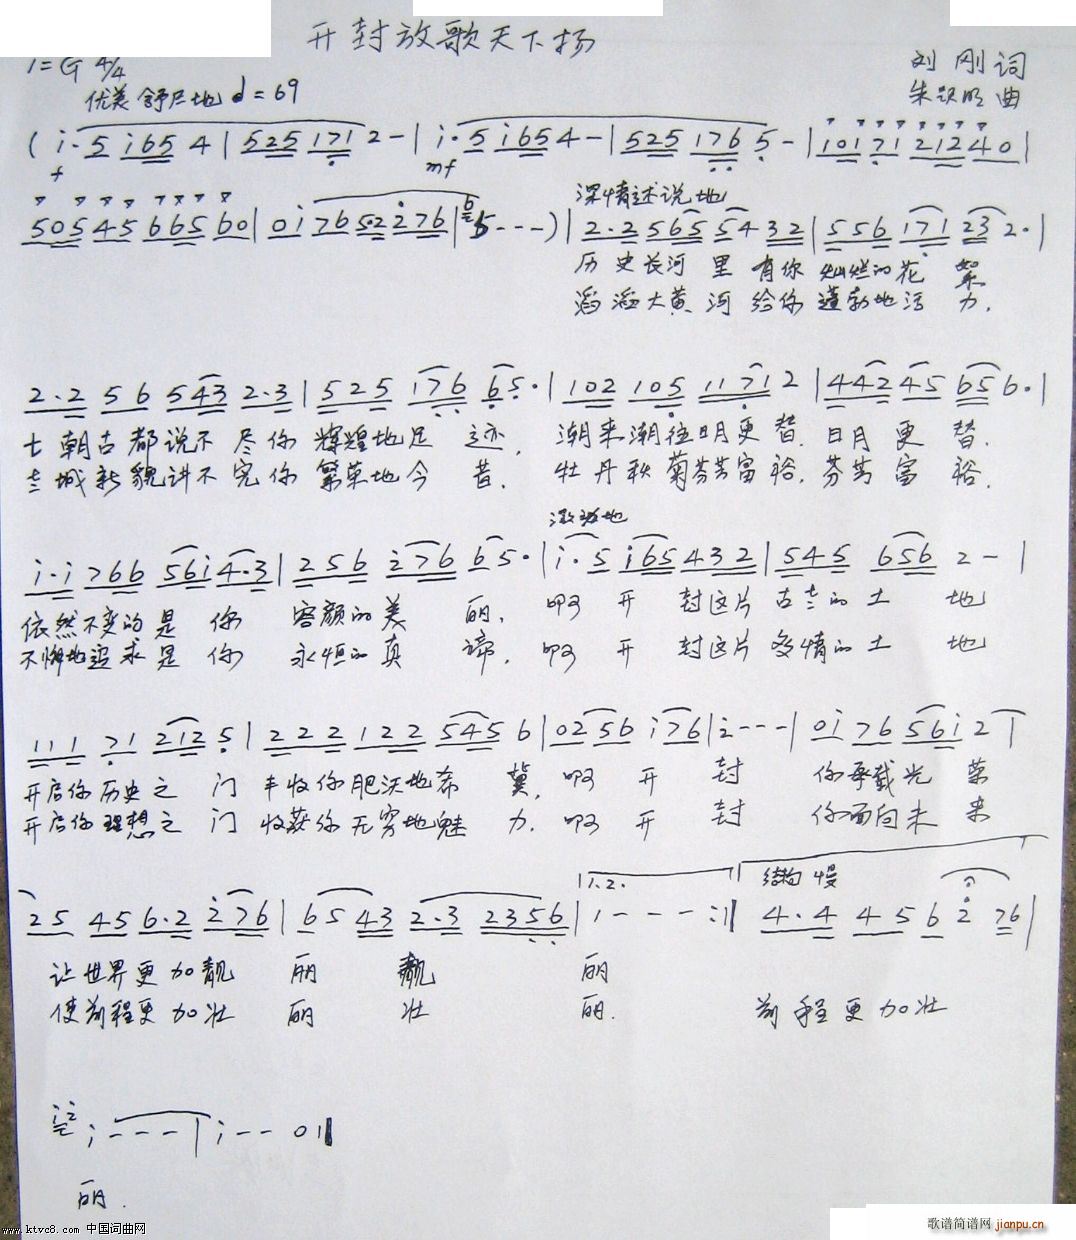 开封放歌天下扬
1=G 4/4
刘刚词
优美 舒展地 ♩=69
朱跃明曲
( i·5 i654 | 525 171 2 - | i·5 i654 - | 525 176 5 - | 101 71 212 40 |
f mf
505 45 665 60 | 0i 76 5·2 2 76 | 5 - - - ) | 2·2 565 54 32 | 556 171 23 2· |
深情述说地
历史长河里有你灿烂的花絮
滔滔大黄河给你蓬勃地活力.
2·2 56 543 2·3 | 525 176 65· | 102 105 1171 2 | 442 45 65 6· |
七朝古都说不尽你辉煌地足迹, 潮来潮往日月更替. 日月更替.
古城新貌讲不完你繁荣地今昔. 牡丹秋菊芬芳富裕, 芬芳富裕.
激动地
i·i 766 56i 4·3 | 256 i76 65· | i·5 i65 432 | 545 656 2 - |
依然不变的是你容颜的美丽, 啊开封这片古老的土地
不悔地追求是你永恒的真谛, 啊开封这片多情的土地
111 71 212 5 | 222 122 545 6 | 02 56 i76 | 2 - - - | 0i 76 56i 2 |
开启你历史之门丰收你肥沃地希冀, 啊开封你承载光荣
开启你理想之门收获你无穷地魅力. 啊开封你面向未来
1.2. 结构 慢
25 456·2 276 | 65 43 2·3 2356 | 1 - - - :‖ 4·4 456 2 76 |
让世界更加靓丽靓丽
使前程更加壮丽壮丽. 前程更加壮
i - - - | i - - 0 ‖
丽.
www.ktvc8.com 中国词曲网
歌谱简谱网 jianpu.cn